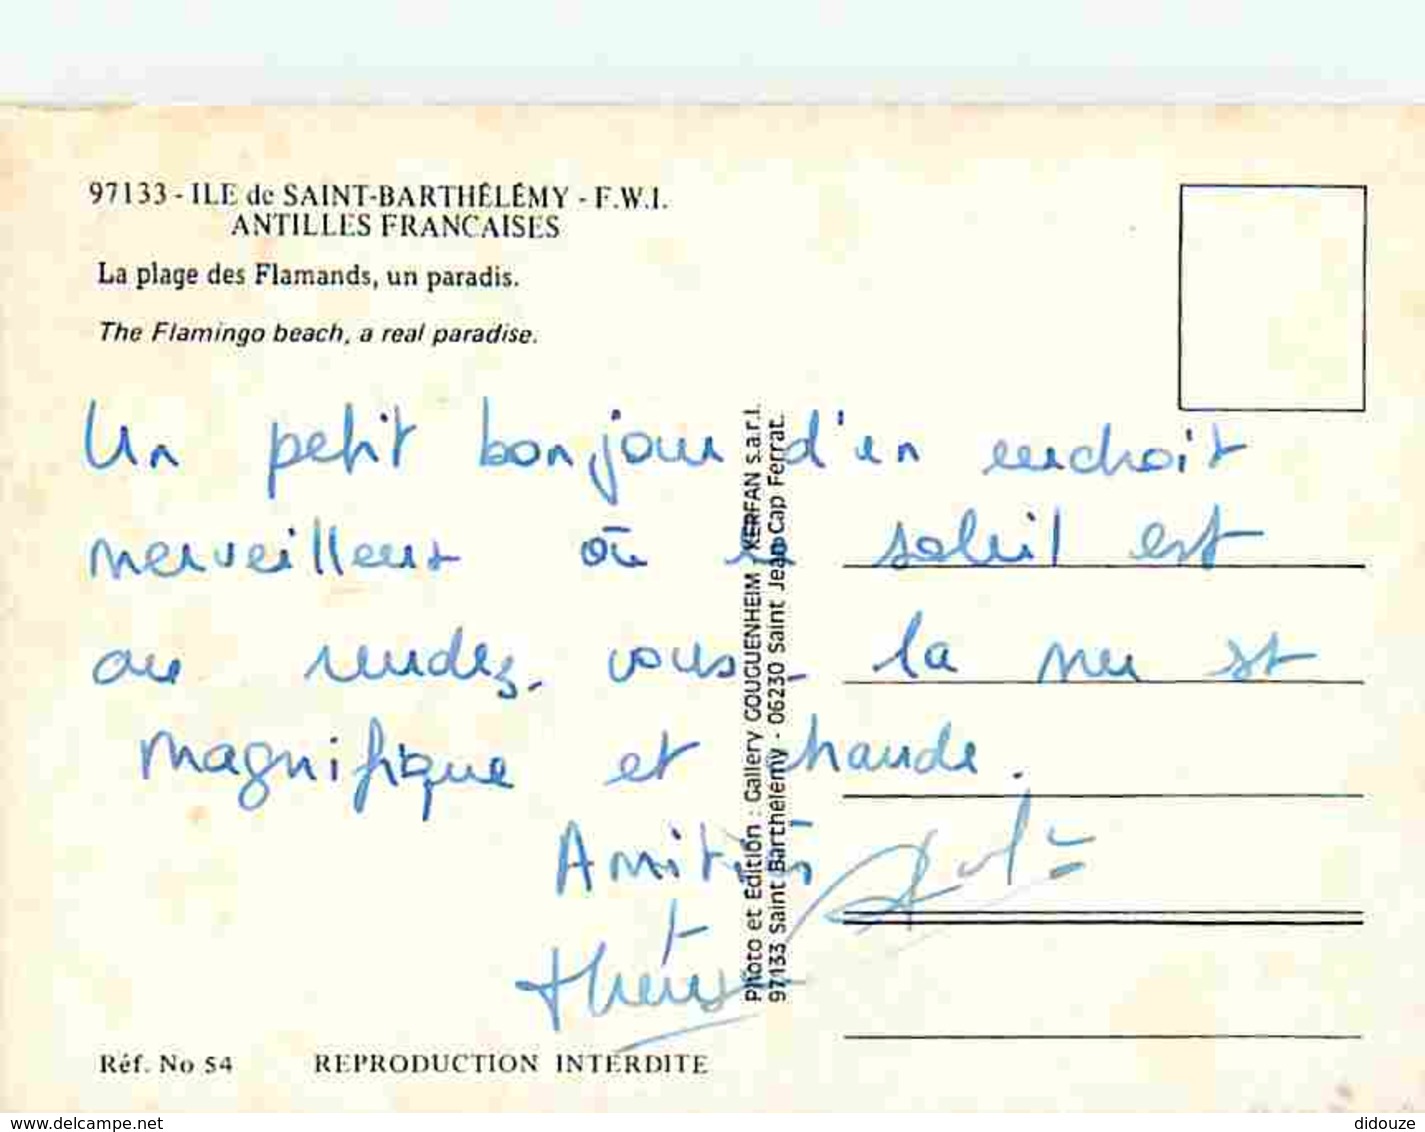 97133 - ILE de SAINT-BARTHÉLÉMY - F.W.I.
ANTILLES FRANCAISES
La plage des Flamands, un paradis.
The Flamingo beach, a real paradise.
Un petit bonjour d'un endroit
merveilleux où le soleil est
au rendez-vous - la mer est
magnifique et chaude.
Amitiés
Photo et Edition : Gallery GOUGUENHEIM / KERFAN s.a.r.l.
97133 Saint Barthélemy - 06230 Saint Jean Cap Ferrat.
Réf. No 54 REPRODUCTION INTERDITE
www.delcampe.net didouze